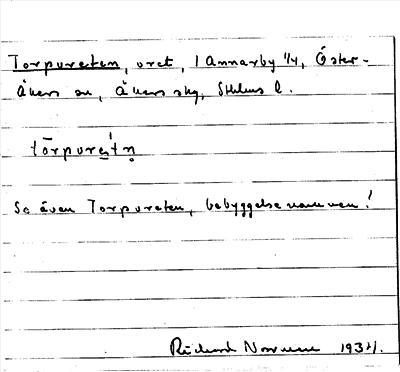 Torpureten, vret, 1 Annarby 1/4, Öster-
åkers sn, Åkers skg, Sthlms l.
tōrpure̱tn̥
Se även Torpureten, bebyggelsenamnen!
Rickard 1934.